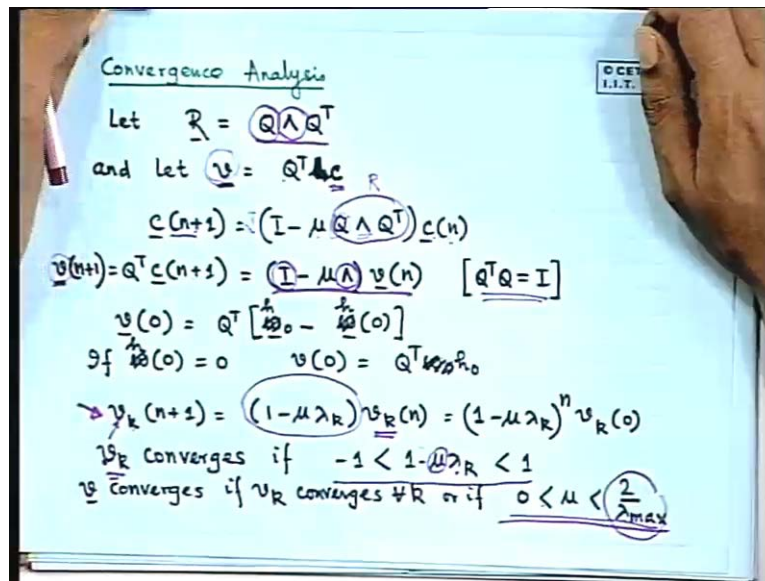 Convergence Analysis
© CET
I.I.T.
Let R = Q Λ Qᵀ
and let v = Qᵀ c
R
c(n+1) = (I - μ Q Λ Qᵀ) c(n)
v(n+1) = Qᵀ c(n+1) = (I - μ Λ) v(n) [QᵀQ = I]
v(0) = Qᵀ [h₀ - h(0)]
If h(0) = 0 v(0) = Qᵀ h₀
v_k (n+1) = (1 - μ λ_k) v_k (n) = (1 - μ λ_k)ⁿ v_k (0)
v_k converges if -1 < 1 - μ λ_k < 1
v converges if v_k converges ∀k or if 0 < μ < 2/λmax